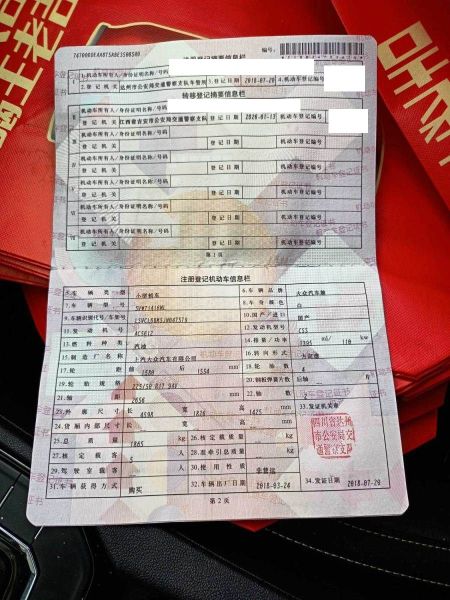 注册登记摘要信息栏
编号:
1.机动车所有人/身份证明名称/号码
2.登记机关 达州市公安局交通警察支队车管所 3.登记日期 2018-07-20 4.机动车登记编号
转移登记摘要信息栏
机动车所有人/身份证明名称/号码
登记机关 江西省吉安市公安局交通警察支队 登记日期 2020-01-13 机动车登记编号
机动车所有人/身份证明名称/号码
登记机关 登记日期 机动车登记编号
机动车所有人/身份证明名称/号码
登记机关 登记日期 机动车登记编号
机动车所有人/身份证明名称/号码
登记机关 登记日期 机动车登记编号
机动车所有人/身份证明名称/号码
登记机关 登记日期 机动车登记编号
机动车所有人/身份证明名称/号码
登记机关 登记日期 机动车登记编号
第1页
注册登记机动车信息栏
5.车辆类型 小型轿车 6.车辆品牌 大众汽车牌
7.车辆型号 8.车身颜色 白
9.车辆识别代号/车架号 10.国产/进口 国产
11.发动机号 12.发动机型号 CSS
13.燃料种类 汽油 14.排量/功率 1395 ml/ 110 kw
15.制造厂名称 上汽大众汽车有限公司 16.转向形式 方向盘
17.轮距 前 1580 后 1554 mm 18.轮胎数 4
19.轮胎规格 225/50 R17 94V 20.钢板弹簧片数 后轴 片
21.轴距 2656 mm 22.轴数 2
23.外廓尺寸 长 4598 宽 1826 高 1425 mm 33.发证机关章
24.货厢内部尺寸 长 宽 高 mm
25.总质量 1865 kg 26.核定载质量 kg
27.核定载客 5 人 28.准牵引总质量 kg
29.驾驶室载客 人 30.使用性质 非营运
31.车辆获得方式 购买 32.车辆出厂日期 2018-03-24 34.发证日期 2018-07-20
第2页